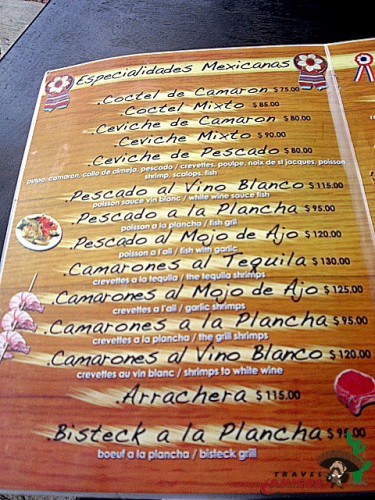 Especialidades Mexicanas
.Coctel de Camaron $75.00
.Coctel Mixto $85.00
.Ceviche de Camaron $80.00
.Ceviche Mixto $90.00
.Ceviche de Pescado $80.00
pulpo, camaron, callo de almeja, pescado / crevettes, poulpe, noix de st jacques, poisson
shrimp, scalops, fish
.Pescado al Vino Blanco $115.00
poisson sauce vin blanc / white wine sauce fish
.Pescado a la Plancha $95.00
poisson a la plancha / fish grill
.Pescado al Mojo de Ajo $120.00
poisson a l'ail / fish with garlic
.Camarones al Tequila $130.00
crevettes a la tequila / the tequila shrimps
.Camarones al Mojo de Ajo $125.00
crevettes a l'ail / garlic shrimps
.Camarones a la Plancha $95.00
crevettes a la plancha / the grill shrimps
.Camarones al Vino Blanco $120.00
crevettes au vin blanc / shrimps to white wine
.Arrachera $115.00
.Bisteck a la Plancha
boeuf a la plancha / bisteck grill
TRAVEL